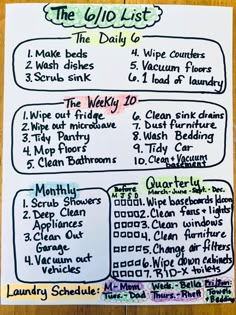 The 6/10 List
The Daily 6
1. Make beds
2. Wash dishes
3. Scrub sink
4. Wipe Counters
5. Vacuum floors
6. 1 load of laundry
The Weekly 10
1. Wipe out fridge
2. Wipe out microwave
3. Tidy Pantry
4. Mop floors
5. Clean Bathrooms
6. Clean sink drains
7. Dust furniture
8. Wash Bedding
9. Tidy Car
10. Clean + Vacuum
basement
Monthly
1. Scrub Showers
2. Deep Clean
Appliances
3. Clean Out
Garage
4. Vacuum out
vehicles
Quarterly
March - June - Sept. - Dec.
M J S D
1. Wipe baseboards/doors
2. Clean fans + lights
3. Clean windows
4. Clean furniture
5. Change air filters
6. Wipe down cabinets
7. RID-X toilets
Laundry Schedule:
M - Mom
Tues. - Dad
Weds. - Bella
Thurs. - Rhett
Towels
+ Bedding